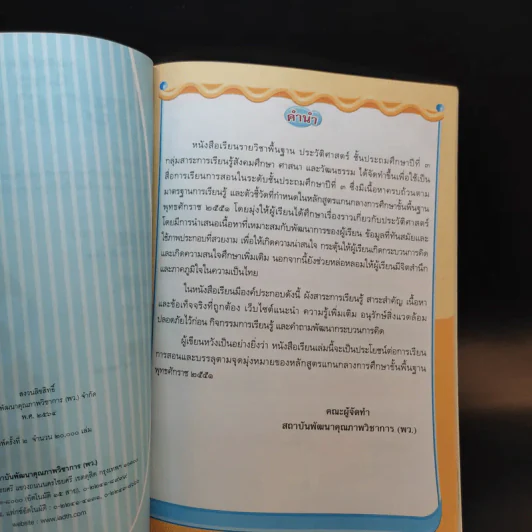 สงวนลิขสิทธิ์
พัฒนาคุณภาพวิชาการ (พว.) จำกัด
พ.ศ. ๒๕๖๔
พิมพ์ครั้งที่ ๒ จำนวน ๒๐,๐๐๐ เล่ม
สถาบันพัฒนาคุณภาพวิชาการ (พว.)
website : www.iadth.com
คำนำ
หนังสือเรียนรายวิชาพื้นฐาน ประวัติศาสตร์ ชั้นประถมศึกษาปีที่ ๓
กลุ่มสาระการเรียนรู้สังคมศึกษา ศาสนา และวัฒนธรรม ได้จัดทำขึ้นเพื่อใช้เป็น
สื่อการเรียนการสอนในระดับชั้นประถมศึกษาปีที่ ๓ ซึ่งมีเนื้อหาครบถ้วนตาม
มาตรฐานการเรียนรู้ และตัวชี้วัดที่กำหนดในหลักสูตรแกนกลางการศึกษาขั้นพื้นฐาน
พุทธศักราช ๒๕๕๑ โดยมุ่งให้ผู้เรียนได้ศึกษาเรื่องราวเกี่ยวกับประวัติศาสตร์
โดยมีการนำเสนอเนื้อหาที่เหมาะสมกับพัฒนาการของผู้เรียน ข้อมูลที่ทันสมัยและ
ใช้ภาพประกอบที่สวยงาม เพื่อให้เกิดความน่าสนใจ กระตุ้นให้ผู้เรียนเกิดกระบวนการคิด
และเกิดความสนใจศึกษาเพิ่มเติม นอกจากนี้ยังช่วยหล่อหลอมให้ผู้เรียนมีจิตสำนึก
และภาคภูมิใจในความเป็นไทย
ในหนังสือเรียนมีองค์ประกอบดังนี้ ผังสาระการเรียนรู้ สาระสำคัญ เนื้อหา
และข้อเท็จจริงที่ถูกต้อง เว็บไซต์แนะนำ ความรู้เพิ่มเติม อนุรักษ์สิ่งแวดล้อม
ปลอดภัยไว้ก่อน กิจกรรมการเรียนรู้ และคำถามพัฒนากระบวนการคิด
ผู้เขียนหวังเป็นอย่างยิ่งว่า หนังสือเรียนเล่มนี้จะเป็นประโยชน์ต่อการเรียน
การสอนและบรรลุตามจุดมุ่งหมายของหลักสูตรแกนกลางการศึกษาขั้นพื้นฐาน
พุทธศักราช ๒๕๕๑
คณะผู้จัดทำ
สถาบันพัฒนาคุณภาพวิชาการ (พว.)